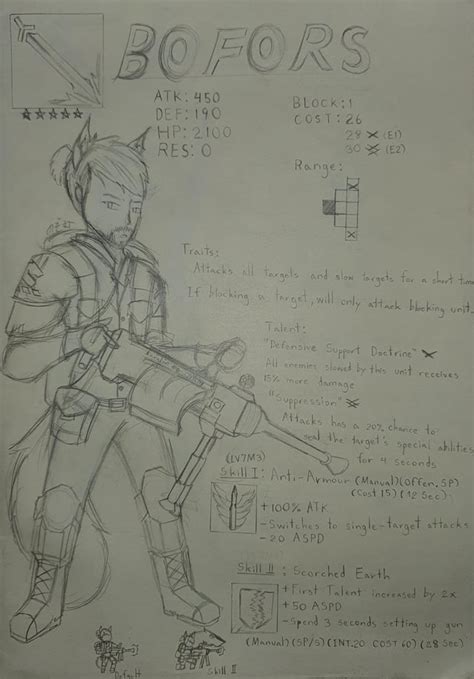 BOFORS
ATK: 450
DEF: 190
HP: 2100
RES: 0
BLOCK: 1
COST: 26
28 (E1)
30 (E2)
Range:
Traits:
Attacks all targets and slow targets for a short time
If blocking a target, will only attack blocking unit.
Talent:
"Defensive Support Doctrine"
All enemies slowed by this unit receives
15% more damage
"Suppression"
Attacks has a 20% chance to
seal the target's special abilities
for 4 seconds
(LV7M3)
Skill I: Ant.-Armour (Manual)(Offen. SP)
(Cost 15) (12 Sec)
+100% ATK
-Switches to single-target attacks
-20 ASPD
Skill II: Scorched Earth
+ First Talent increased by 2x
+ 50 ASPD
-Spend 3 seconds setting up gun
(Manual) (SP/S) (INT.20 COST 60) (28 Sec)
Default
Skill II